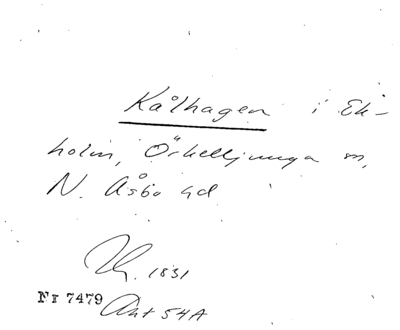 Kålhagen i Ek-
holm, Örkelljunga sn,
N. Åsbo hd
1831
Nr 7479 Akt 54A